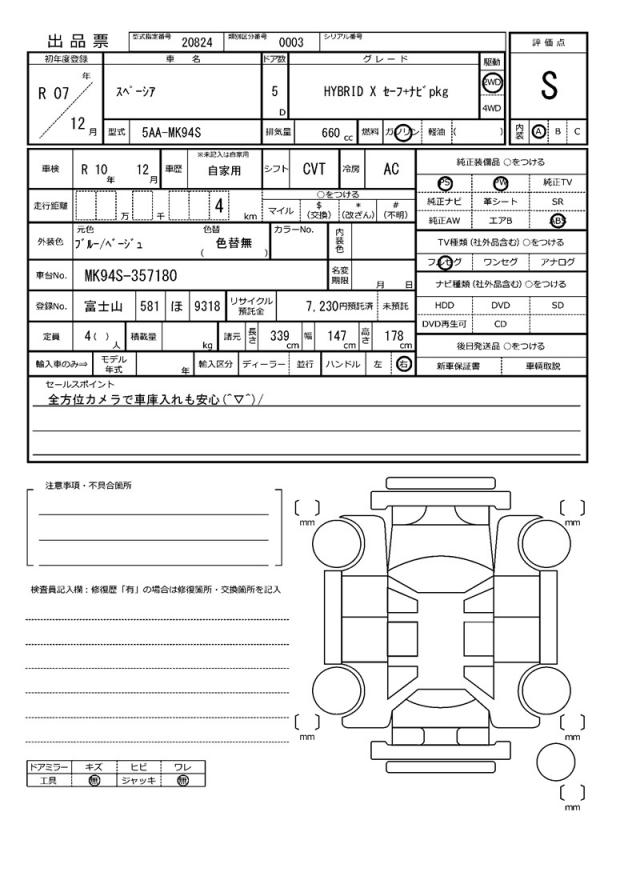 出品票 型式指定番号 20824 類別区分番号 0003 シリアル番号
評価点
S
初年度登録 車名 ドア数 グレード 駆動
R 07 年 スペーシア 5 D HYBRID X セーフ+ナビpkg 2WD
4WD
12 月 型式 5AA-MK94S 排気量 660 cc 燃料 ガソリン 軽油 ( )
内装 A B C
車検 R 10 年 12 月 車歴 ※未記入は自家用 自家用 シフト CVT 冷房 AC
走行距離 万 千 4 km
○をつける
マイル $(交換) *(改ざん) #(不明)
外装色 元色 ブルー/ベージュ 色替 ( 色替無 ) カラーNo. 内装色
車台No. MK94S-357180 名変期限 月 日
登録No. 富士山 581 ほ 9318 リサイクル預託金 7,230円預託済 未預託
定員 4( ) 人 積載量 kg 諸元 長さ 339 cm 幅 147 cm 高さ 178 cm
輸入車のみ⇒ モデル年式 年 輸入区分 ディーラー 並行 ハンドル 左 右
純正装備品 ○をつける
PS PW 純正TV
純正ナビ 革シート SR
純正AW エアB ABS
TV種類(社外品含む) ○をつける
フルセグ ワンセグ アナログ
ナビ種類(社外品含む) ○をつける
HDD DVD SD
DVD再生可 CD
後日発送品 ○をつける
新車保証書 車輌取説
セールスポイント
全方位カメラで車庫入れも安心(^▽^)/
注意事項・不具合箇所
検査員記入欄：修復歴「有」の場合は修復箇所・交換箇所を記入
ドアミラー キズ ヒビ ワレ
工具 無 ジャッキ 無
mm
mm
mm
mm
mm